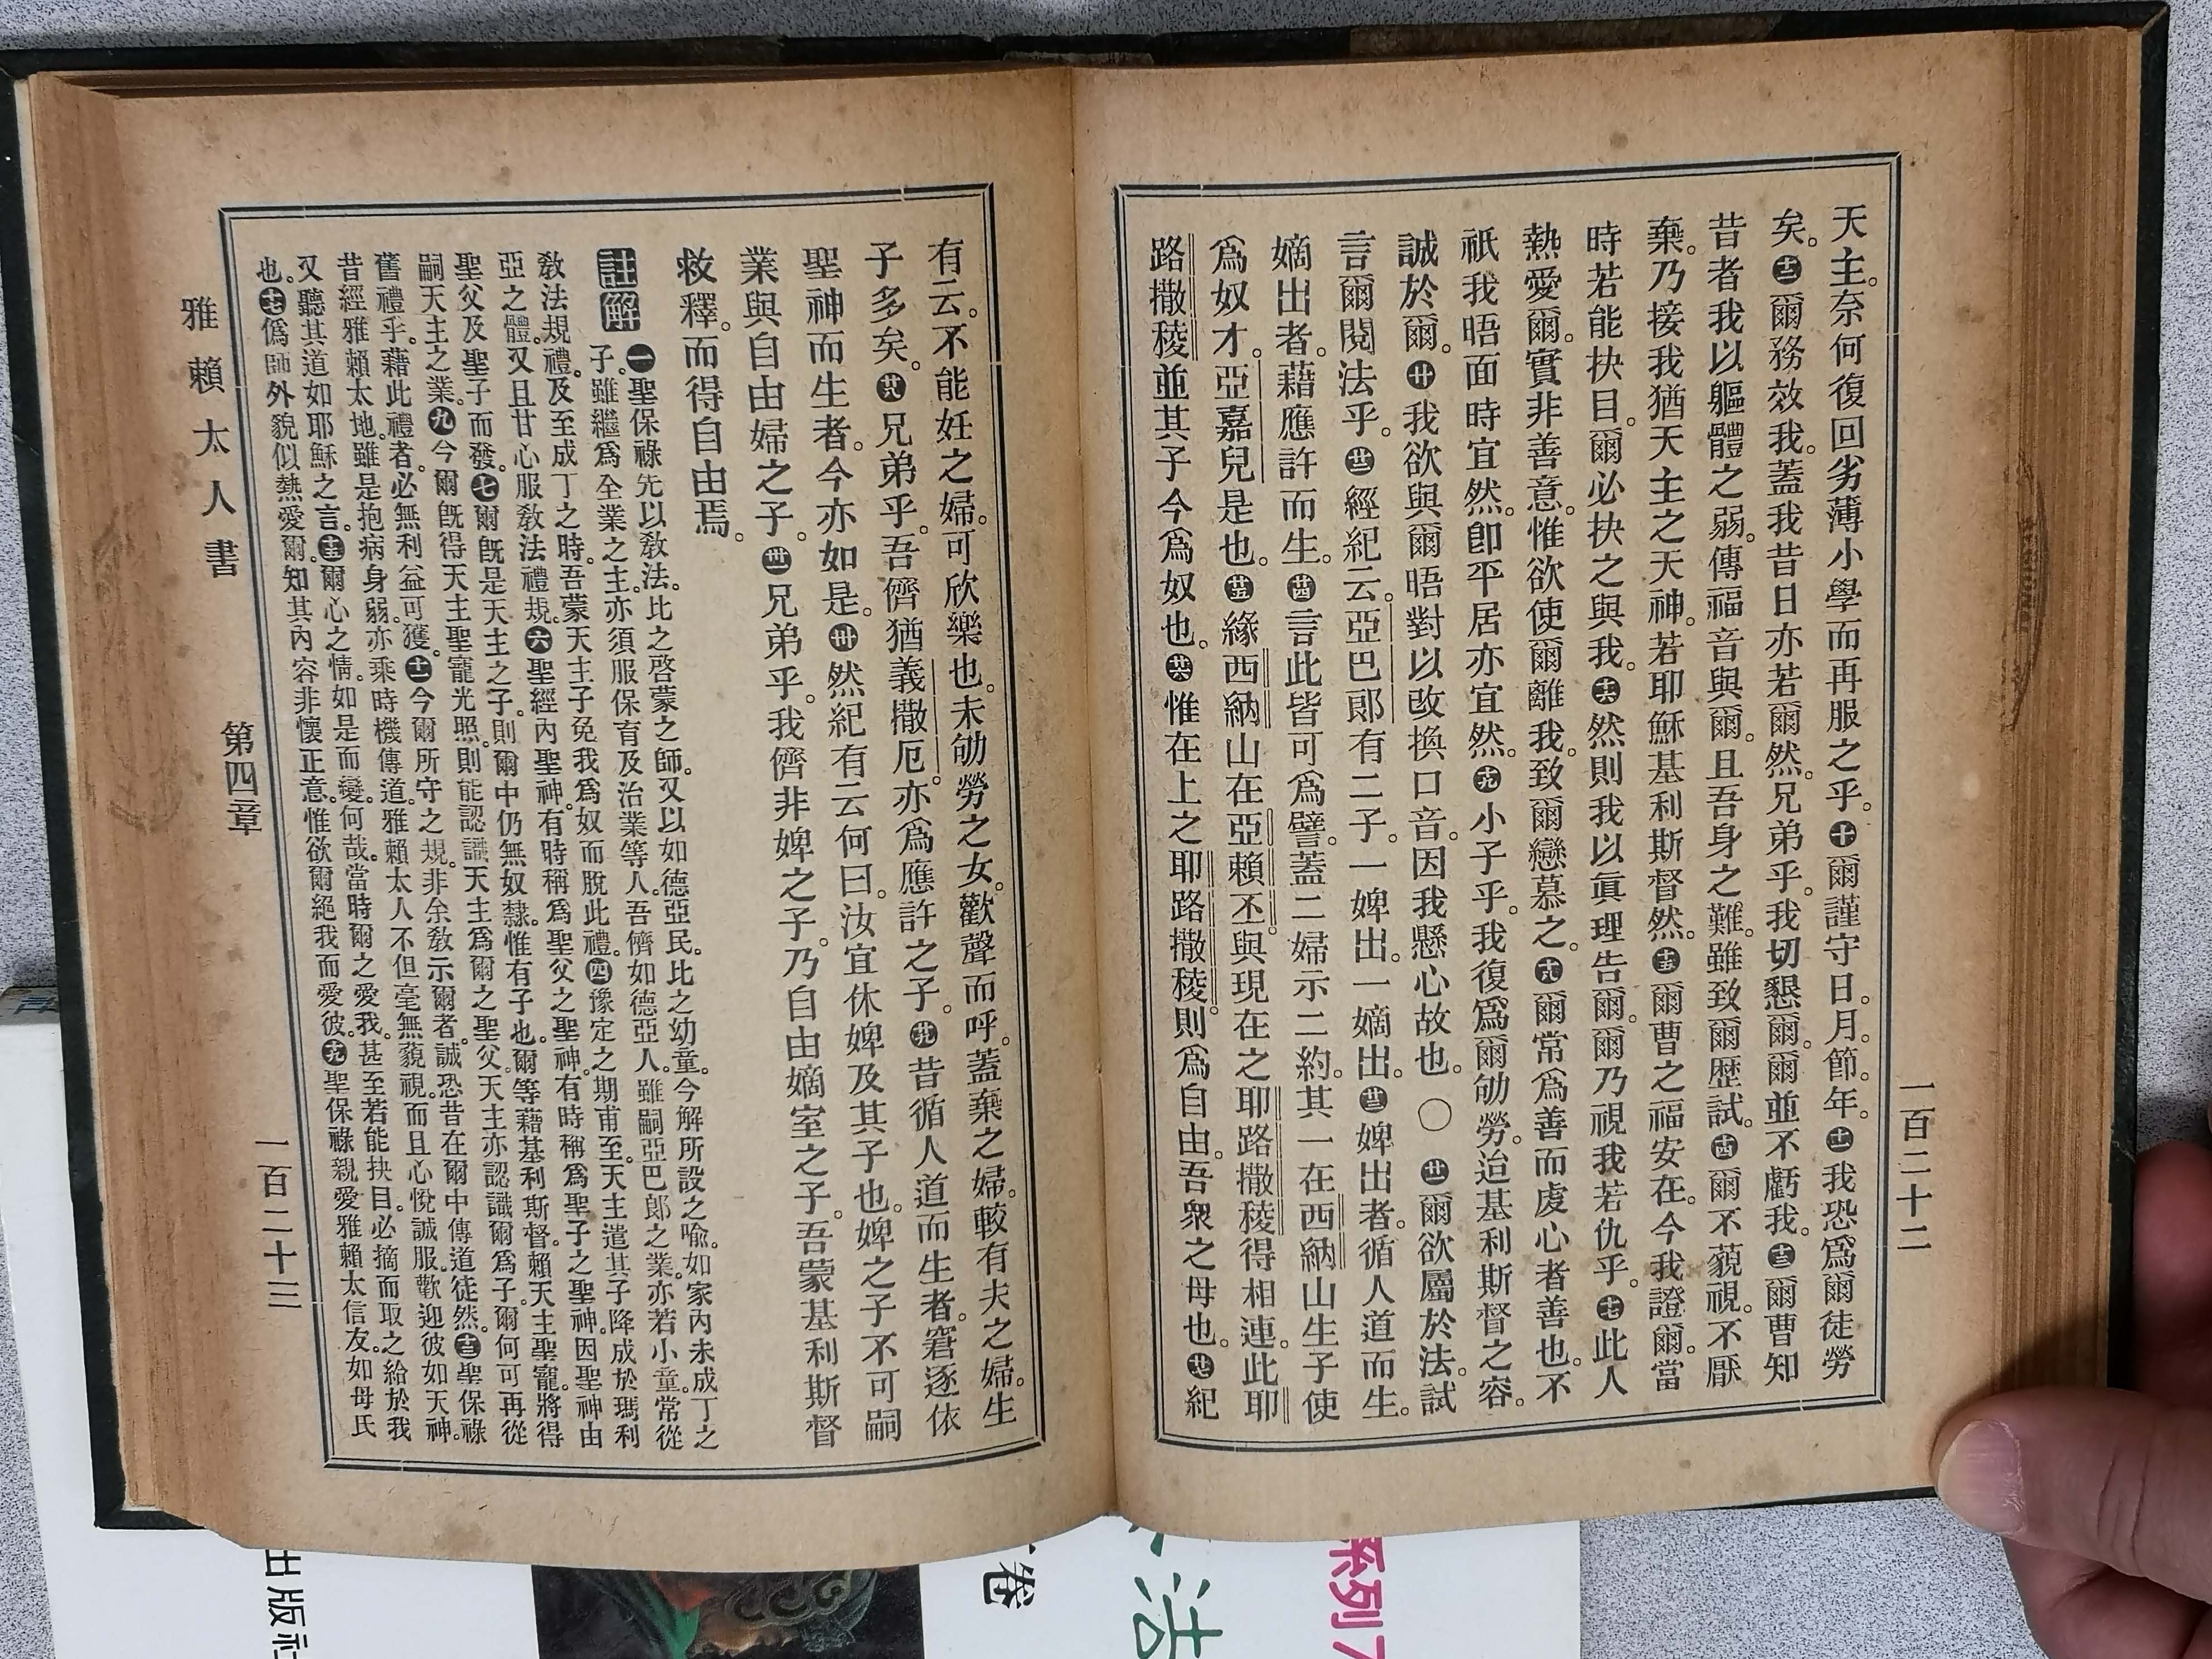 一百二十二
天主。奈何復回劣薄小學而再服之乎。㊉爾謹守日。月。節。年。⑪我恐爲爾徒勞
矣。⑫爾務效我。蓋我昔日亦若爾然。兄弟乎。我切懇爾。爾並不虧我。⑬爾曹知
昔者我以軀體之弱。傳福音與爾。且吾身之難。雖致爾歷試。⑭爾不藐視。不厭
棄。乃接我猶天主之天神。若耶穌基利斯督然。⑮爾曹之福安在。今我證爾。當
時若能抉目。爾必抉之與我。⑯然則我以眞理告爾。爾乃視我若仇乎。⑰此人
熱愛爾。實非善意。惟欲使爾離我。致爾戀慕之。⑱爾常爲善而虔心者善也。不
祇我晤面時宜然。卽平居亦宜然。⑲小子乎。我復爲爾劬勞。迨基利斯督之容。
誠於爾。⑳我欲與爾晤對以改換口音。因我懸心故也。〇㉑爾欲屬於法。試
言爾閱法乎。㉒經紀云。亞巴郎有二子。一婢出。一嫡出。㉓婢出者。循人道而生。
嫡出者。藉應許而生。㉔言此皆可爲譬。蓋二婦示二約。其一在西納山生子使
爲奴才。亞嘉兒是也。㉕緣西納山在亞賴丕。與現在之耶路撒稜得相連。此耶
路撒稜並其子今爲奴也。㉖惟在上之耶路撒稜。則爲自由。吾衆之母也。㉗紀
有云。不能妊之婦。可欣樂也。未劬勞之女。歡聲而呼。蓋棄之婦。較有夫之婦。生
子多矣。㉘兄弟乎。吾儕猶義撒厄。亦爲應許之子。㉙昔循人道而生者。窘逐依
聖神而生者。今亦如是。㉚然紀有云何曰。汝宜休婢及其子也。婢之子不可嗣
業與自由婦之子。㉛兄弟乎。我儕非婢之子。乃自由嫡室之子。吾蒙基利斯督
救釋。而得自由焉。
註解 ㊀聖保祿先以敎法。比之啓蒙之師。又以如德亞民。比之幼童。今解所設之喩。如家內未成丁之
子。雖繼爲全業之主。亦須服保育及治業等人。吾儕如德亞人。雖嗣亞巴郎之業。亦若小童。常從
敎法規禮。及至成丁之時。吾蒙天主子免我爲奴而脫此禮。㊃豫定之期甫至。天主遣其子降成於瑪利
亞之體。又且甘心服敎法禮規。㊅聖經內聖神。有時稱爲聖父之聖神。有時稱爲聖子之聖神。因聖神由
聖父及聖子而發。㊆爾旣是天主之子。則爾中仍無奴隸。惟有子也。爾等藉基利斯督。賴天主聖寵。將得
嗣天主之業。㊈今爾旣得天主聖寵光照。則能認識天主爲爾之聖父。天主亦認識爾爲子。爾何可再從
舊禮乎。藉此禮者。必無利益可獲。⑪今爾所守之規。非余敎示爾者。誠恐昔在爾中傳道徒然。⑬聖保祿
昔經雅賴太地。雖是抱病身弱。亦乘時機傳道。雅賴太人不但毫無藐視。而且心悅誠服。歡迎彼如天神。
又聽其道如耶穌之言。⑮爾心之情。如是而變。何哉。當時爾之愛我。甚至若能抉目。必摘而取之給於我
也。⑰僞師外貌似熱愛爾。知其內容非懷正意。惟欲爾絕我而愛彼。⑲聖保祿親愛雅賴太信友。如母氏
雅賴太人書 第四章 一百二十三
出版社
卷
法
系列7